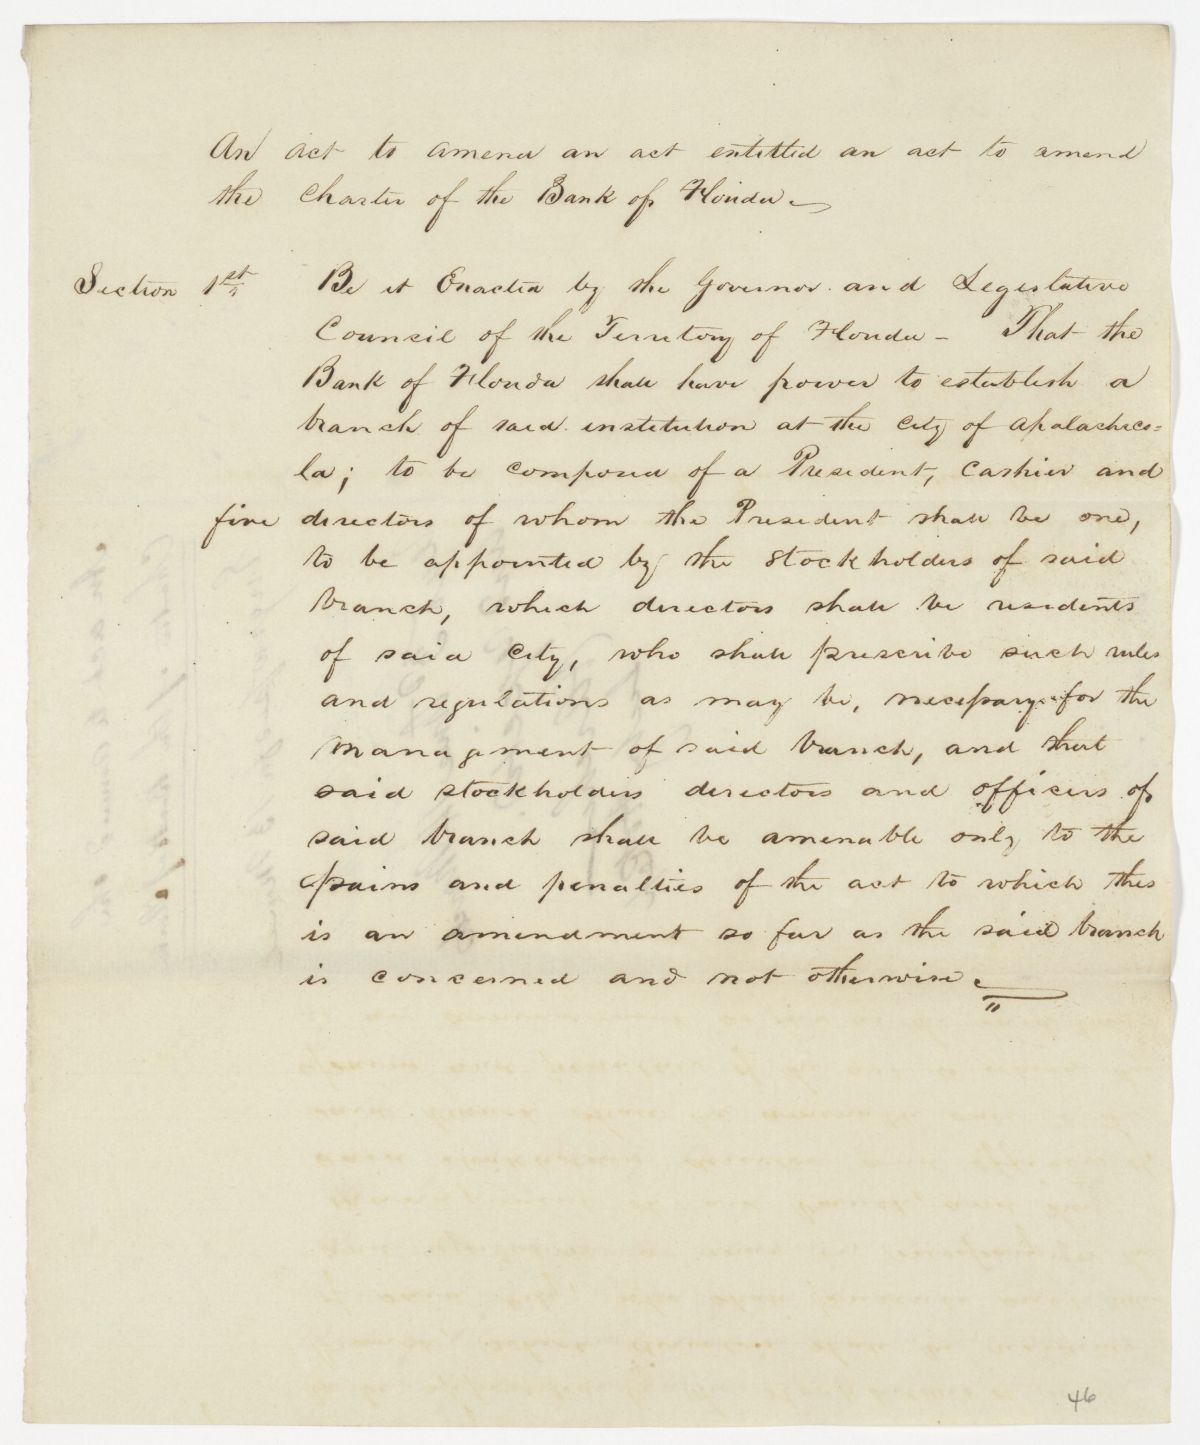 An act to amend an act entitled an act to amend
the Charter of the Bank of Florida
Section 1st Be it Enacted by the Governor and Legislative
Council of the Territory of Florida - That the
Bank of Florida shall have power to establish a
branch of said institution at the city of Apalachico=
la; to be composed of a President, Cashier and
five directors of whom the President shall be one,
to be appointed by the Stockholders of said
branch, which directors shall be residents
of said City, who shall prescribe such rules
and regulations as may be, necessary for the
management of said branch, and that
said stockholders directors and officers of
said branch shall be amenable only to the
pains and penalties of the act to which this
is an amendment so far as the said branch
is concerned and not otherwise.
46